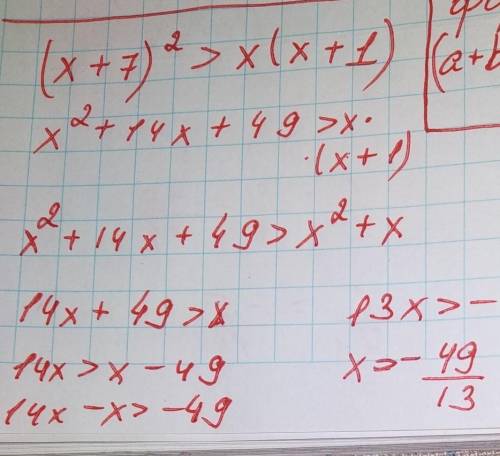 (x+7)² > x(x+1)
x² + 14x + 49 > x·
·(x+1)
x² + 14x + 49 > x² + x
14x + 49 > x
14x > x - 49
14x - x > -49
13x > -
x > - 49/13
(a+b